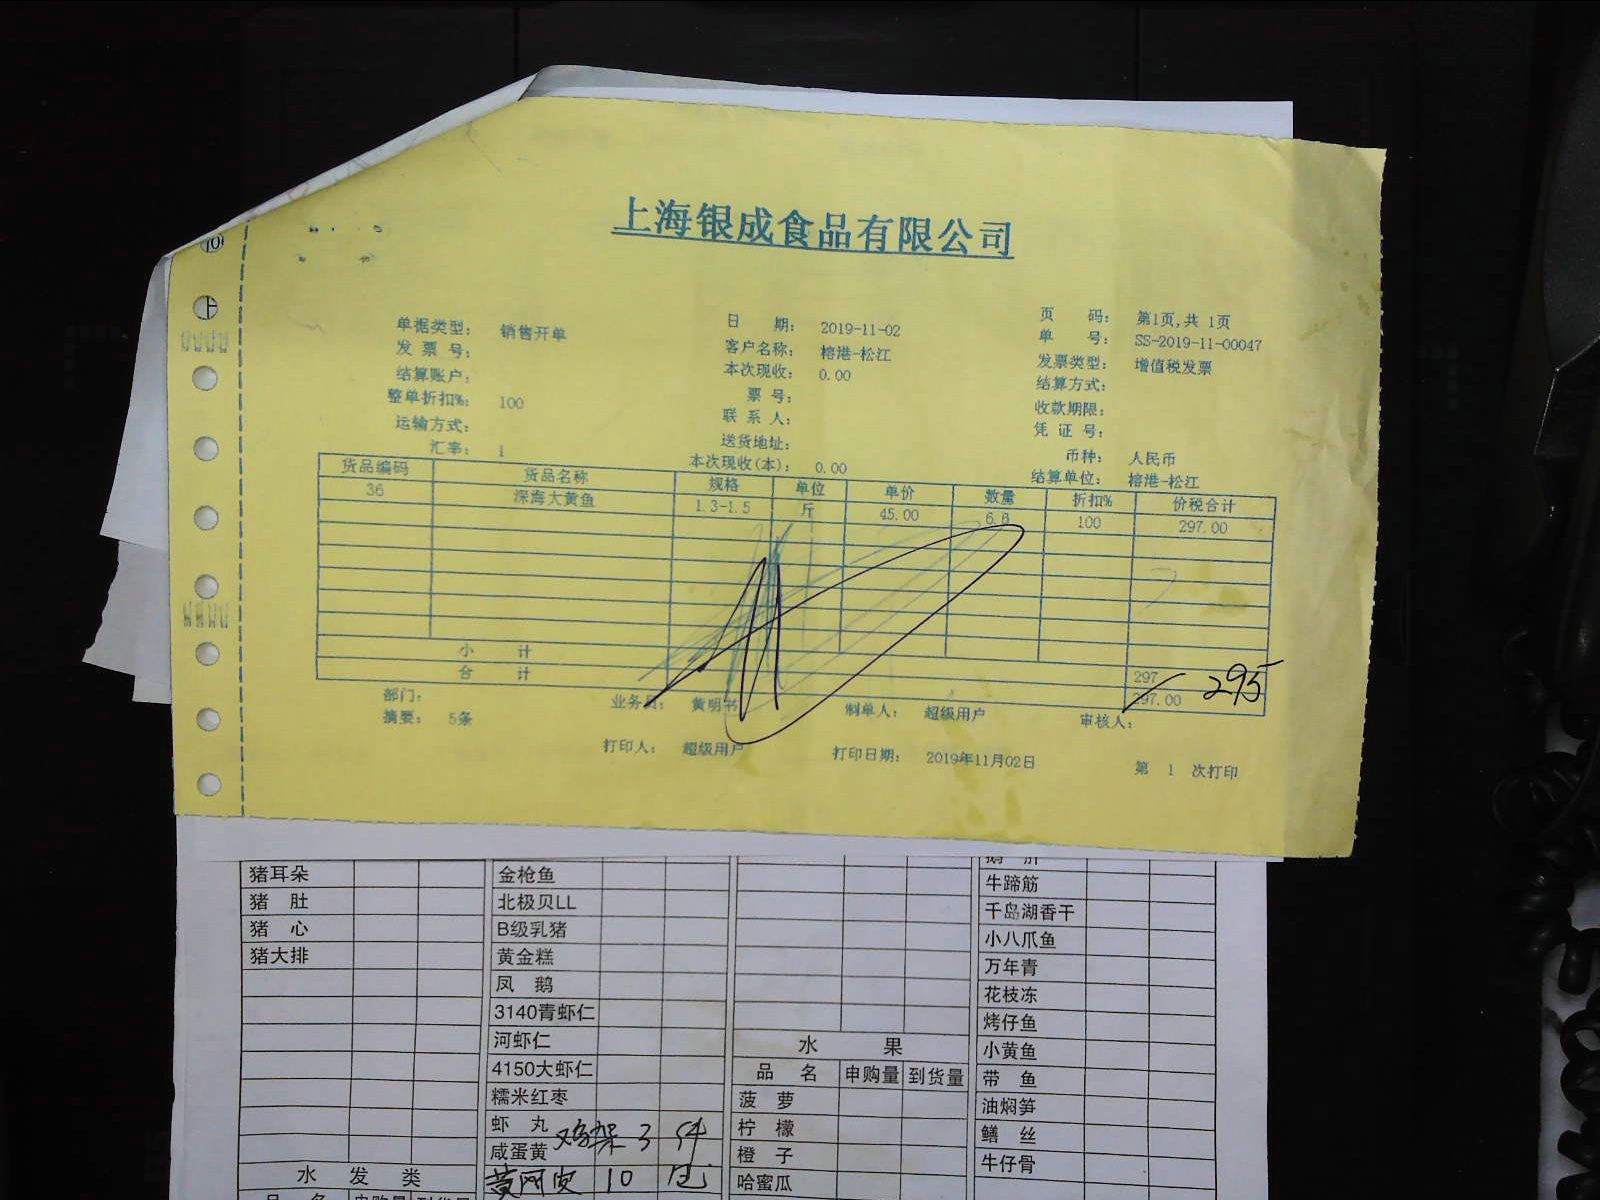 上海银成食品有限公司
单据类型： 销售开单 日 期： 2019-11-02 页 码： 第1页,共 1页
发 票 号： 客户名称： 榕港-松江 单 号： SS-2019-11-00047
结算账户： 本次现收： 0.00 发票类型： 增值税发票
整单折扣%： 100 票 号： 结算方式：
运输方式： 联 系 人： 收款期限：
汇率： 1 送货地址： 凭 证 号：
本次现收(本)： 0.00 币种： 人民币
结算单位： 榕港-松江
货品编码 货品名称 规格 单位 单价 数量 折扣% 价税合计
36 深海大黄鱼 1.3-1.5 斤 45.00 6.6 100 297.00
小 计 297
合 计 297.00 295
部门： 业务员： 黄明书 制单人： 超级用户 审核人：
摘要： 5条
打印人： 超级用户 打印日期： 2019年11月02日 第 1 次打印
猪耳朵 金枪鱼
猪 肚 北极贝LL 牛蹄筋
猪 心 B级乳猪 千岛湖香干
猪大排 黄金糕 小八爪鱼
凤 鹅 万年青
3140青虾仁 花枝冻
河虾仁 水 果 烤仔鱼
4150大虾仁 品 名 申购量 到货量 小黄鱼
糯米红枣 菠 萝 带 鱼
虾 丸 鸡架 3 件 柠 檬 油焖笋
咸蛋黄 橙 子 鳝 丝
水 发 类 黄网皮 10 包 哈蜜瓜 牛仔骨